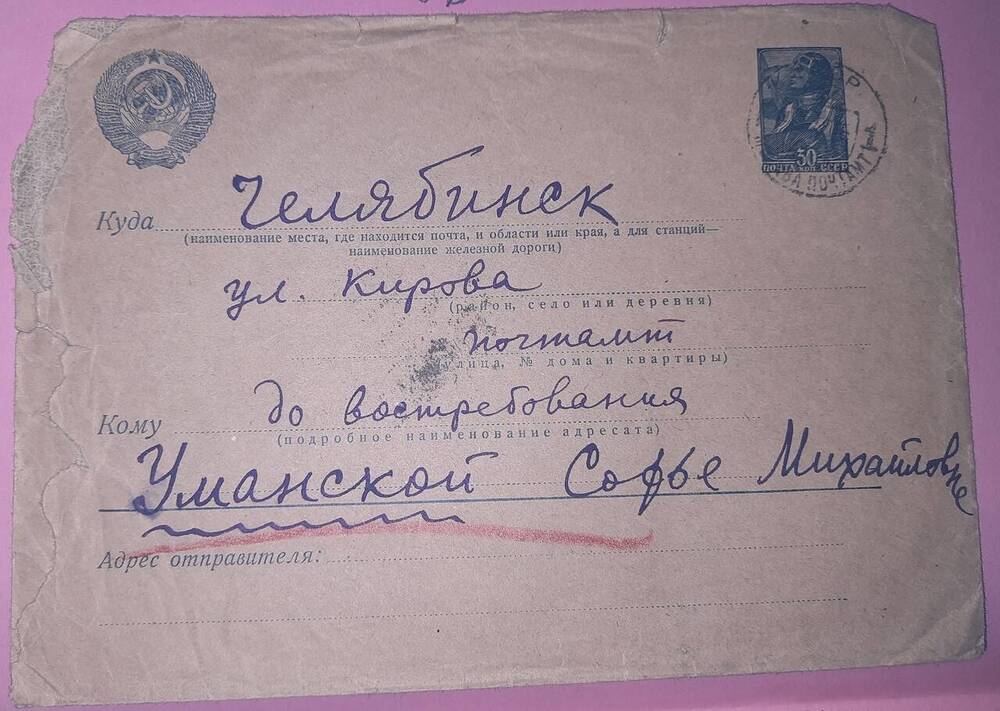 Куда
Челябинск
(наименование места, где находится почта, и области или края, а для станций—
наименование железной дороги)
ул. Кирова
(район, село или деревня)
почтамт
(улица, № дома и квартиры)
до востребования
Кому
(подробное наименование адресата)
Уманской Софье Михайловне
Адрес отправителя:
30
ПОЧТА СССР
ПОЧТАМТ